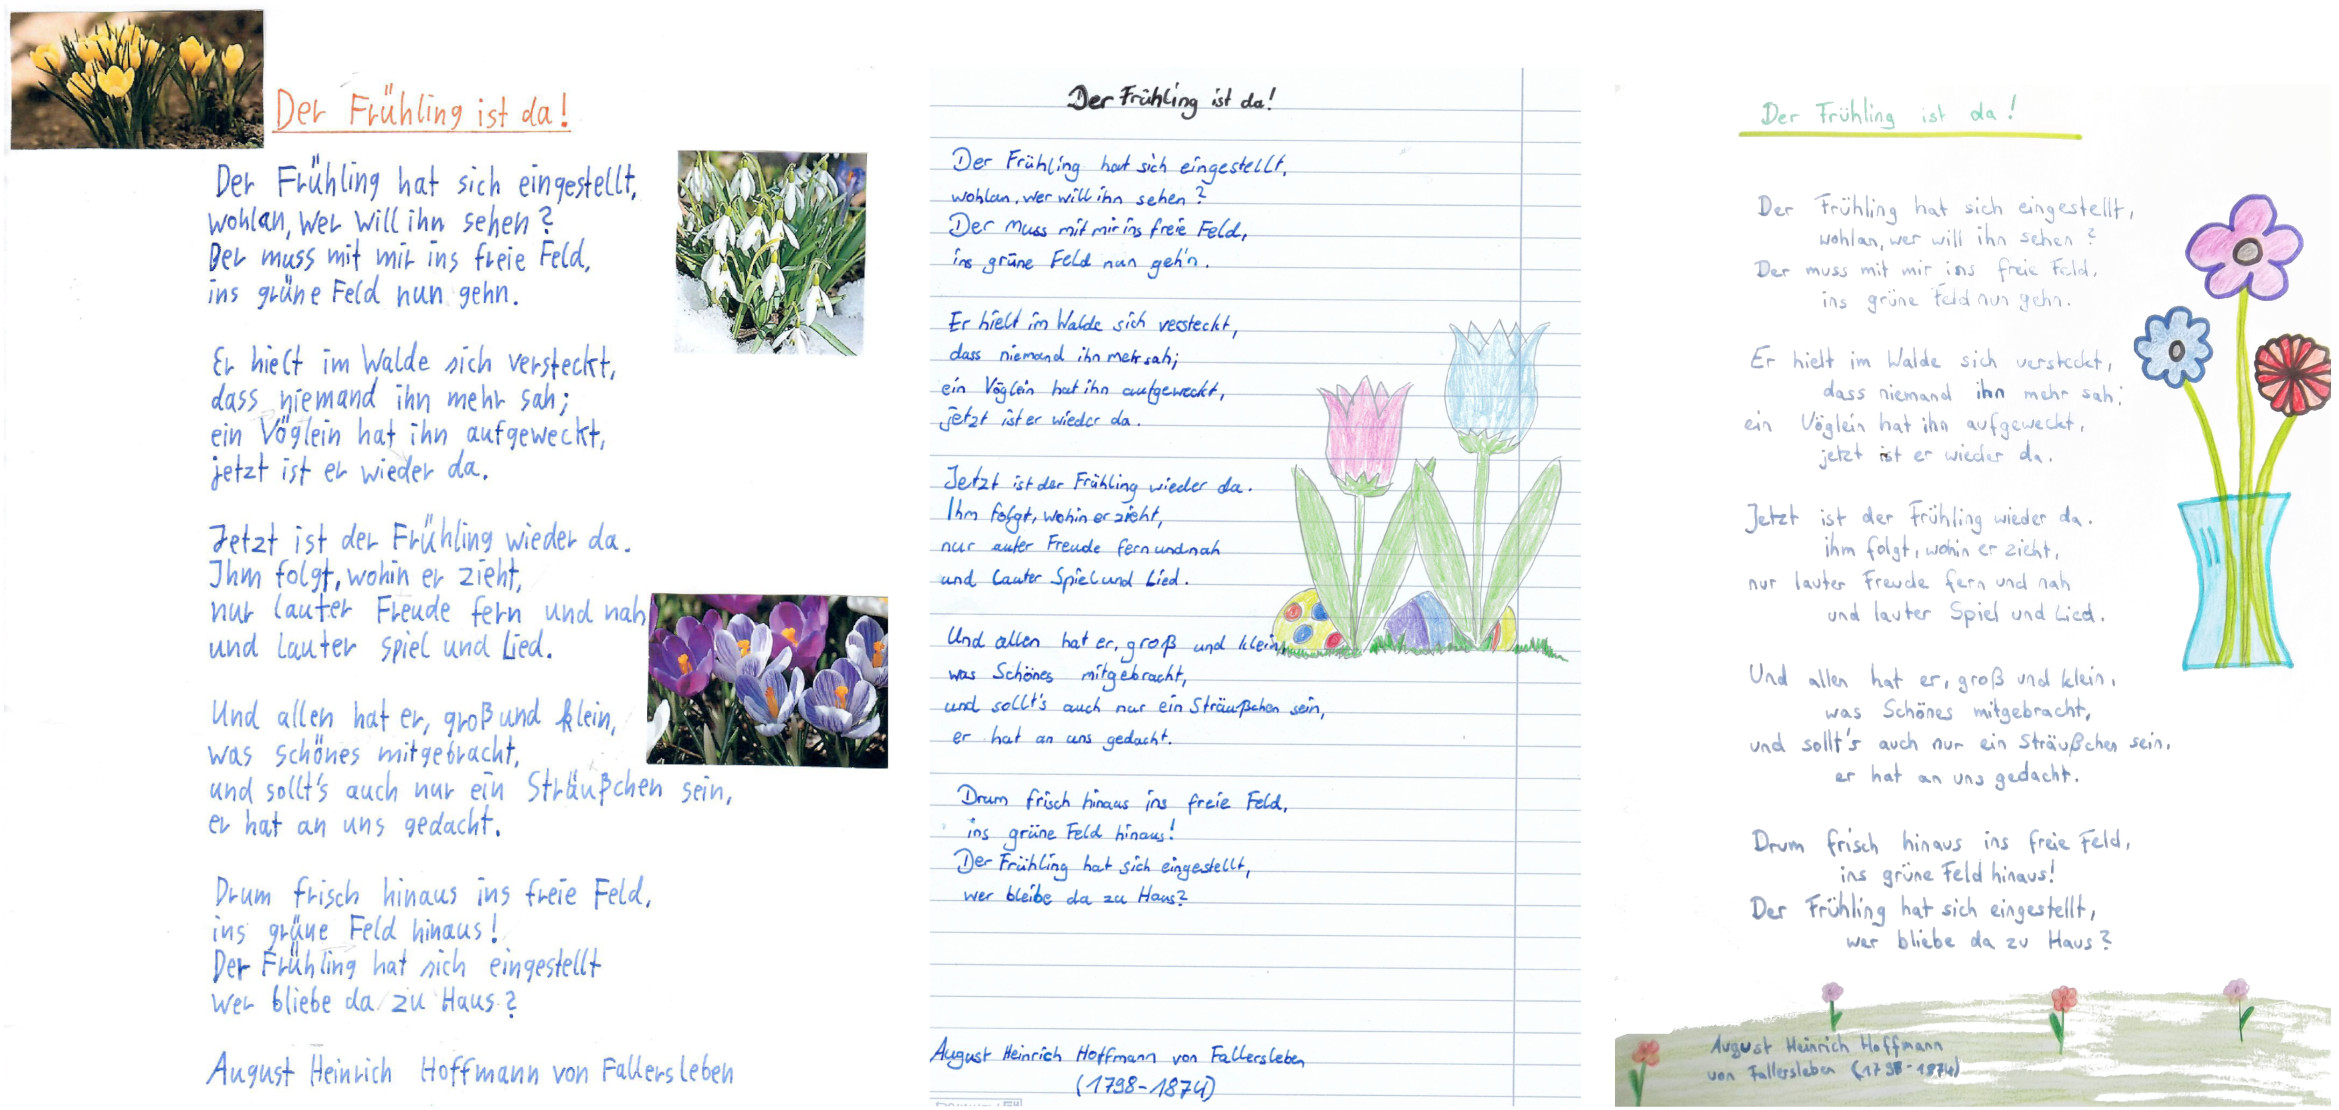 Der Frühling ist da!
Der Frühling hat sich eingestellt,
wohlan, wer will ihn sehen?
Der muss mit mir ins freie Feld,
ins grüne Feld nun gehn.
Er hielt im Walde sich versteckt,
dass niemand ihn mehr sah;
ein Vöglein hat ihn aufgeweckt,
jetzt ist er wieder da.
Jetzt ist der Frühling wieder da.
Ihm folgt, wohin er zieht,
nur lauter Freude fern und nah
und lauter Spiel und Lied.
Und allen hat er, groß und klein,
was schönes mitgebracht,
und sollt's auch nur ein Sträußchen sein,
er hat an uns gedacht.
Drum frisch hinaus ins freie Feld,
ins grüne Feld hinaus!
Der Frühling hat sich eingestellt
wer bliebe da zu Haus?
August Heinrich Hoffmann von Fallersleben
Der Frühling ist da!
Der Frühling hat sich eingestellt,
wohlan, wer will ihn sehen?
Der muss mit mir ins freie Feld,
ins grüne Feld nun geh'n.
Er hielt im Walde sich versteckt,
dass niemand ihn mehr sah;
ein Vöglein hat ihn aufgeweckt,
jetzt ist er wieder da.
Jetzt ist der Frühling wieder da.
Ihm folgt, wohin er zieht,
nur auter Freude fern und nah
und lauter Spiel und Lied.
Und allen hat er, groß und klein,
was Schönes mitgebracht,
und sollt's auch nur ein Sträußchen sein,
er hat an uns gedacht.
Drum frisch hinaus ins freie Feld,
ins grüne Feld hinaus!
Der Frühling hat sich eingestellt,
wer bleibe da zu Haus?
August Heinrich Hoffmann von Fallersleben
(1798-1874)
Der Frühling ist da!
Der Frühling hat sich eingestellt,
wohlan, wer will ihn sehen?
Der muss mit mir ins freie Feld,
ins grüne Feld nun gehn.
Er hielt im Walde sich versteckt,
dass niemand ihn mehr sah;
ein Vöglein hat ihn aufgeweckt,
jetzt ist er wieder da.
Jetzt ist der Frühling wieder da.
ihm folgt, wohin er zieht,
nur lauter Freude fern und nah
und lauter Spiel und Lied.
Und allen hat er, groß und klein,
was Schönes mitgebracht,
und sollt's auch nur ein Sträußchen sein,
er hat an uns gedacht.
Drum frisch hinaus ins freie Feld,
ins grüne Feld hinaus!
Der Frühling hat sich eingestellt,
wer bliebe da zu Haus?
August Heinrich Hoffmann
von Fallersleben (1798-1874)